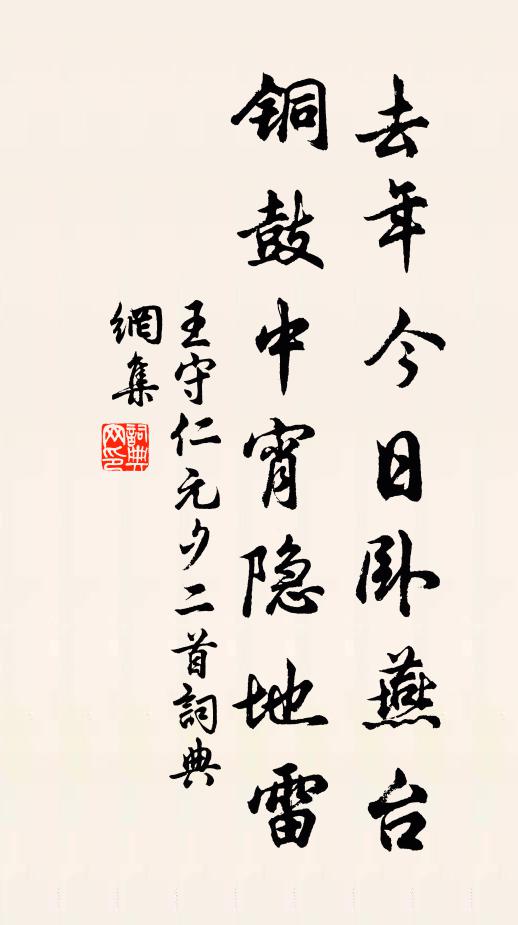 去年今日卧燕台
铜鼓中宵隐地雷
王守仁元夕二首詞典
網集
詞典
网印